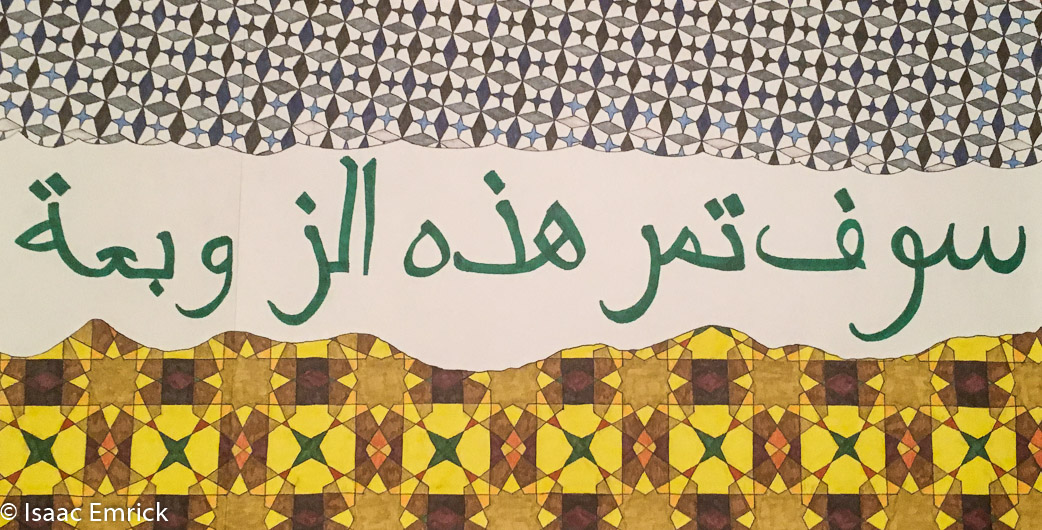 سوف تمر هذه الزوبعة
© Isaac Emrick